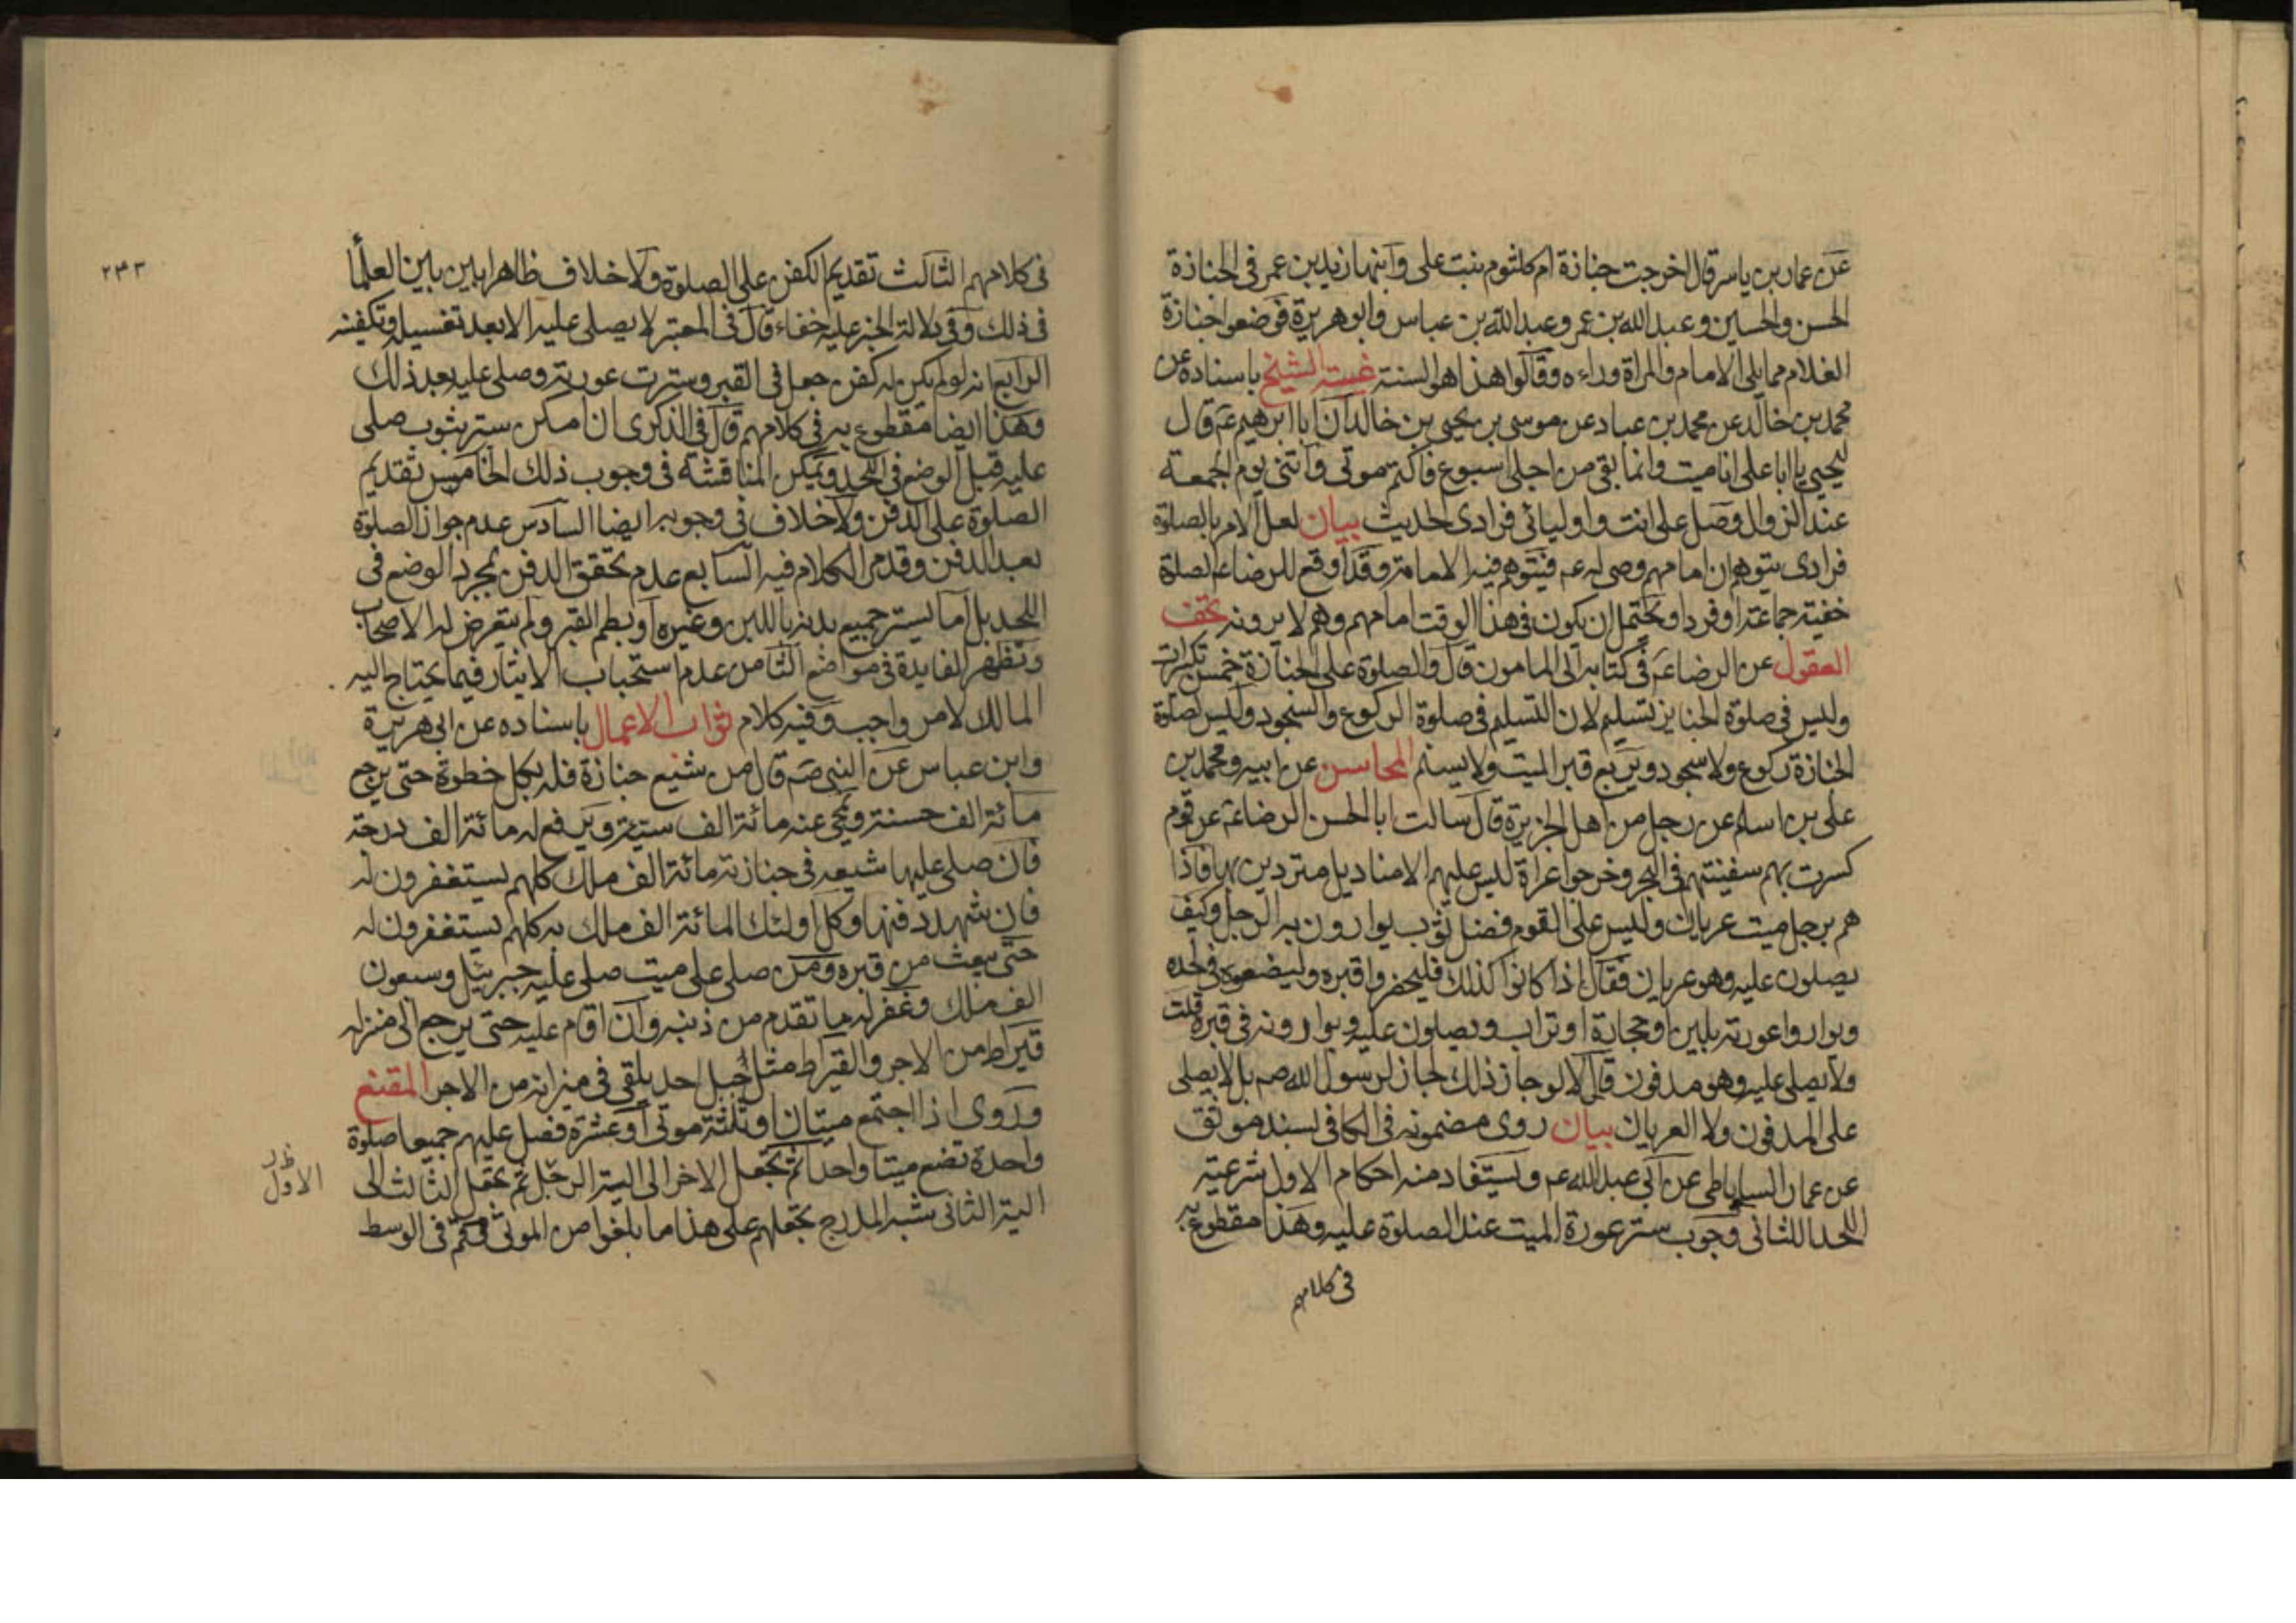 عن عمار بن ياسر قال اخرجت جنازة ام كلثوم بنت على وابنها زيد بن عمر فى الجنازة
الحسن والحسين وعبد الله بن عمر وعبد الله بن عباس وابو هريرة فوضعوا جنازة
الغلام مما يلى الامام والمراة وراءه وقالوا هذا هو السنة غيبة الشيخ باسناده عن
محمد بن خالد عن محمد بن عباد عن موسى بن يحيى بن خالد ان ابا ابرهيم ع قال
ليحيى يا ابا على انا ميت وانما بقى من اجلى اسبوع فاكتم موتى وائتنى يوم الجمعة
عند الزوال وصل على انت واوليائى فرادى الحديث بيان لعل الامر بالصلوة
فرادى يتوهم ان امامهم وصى له ع فيتوهم فيه الامامة وقد اوقع للرضا ع الصلوة
خفية جماعة او فردا ويحتمل ان يكون فى هذا الوقت امامهم وهم لا يرونه تحف
العقول عن الرضا ع فى كتابه الى المامون قال والصلوة على الجنازة خمس تكبيرات
وليس فى صلوة الجنايز تسليم لان التسليم فى صلوة الركوع والسجود وليس لصلوة
الجنازة ركوع ولا سجود ويربع قبر الميت ولا يسنم المحاسن عن ابيه ومحمد بن
على بن اسلم عن رجل من اهل الجزيرة قال سالت ابا الحسن الرضا ع عن قوم
كسرت بهم سفينتهم فى البحر وخرجوا عراة ليس عليهم الا مناديل متزرين بها فاذا
هم برجل ميت عريان وليس على القوم فضل ثوب يوارون به الرجل وكيف
يصلون عليه وهو عريان فقال اذا كانوا كذلك فليحفروا قبره وليضعوه فى لحده
ويواروا عورته بلبن او حجارة او تراب ويصلون عليه ويوارونه فى قبره قلت
ولا يصلى عليه وهو مدفون قال لا لو جاز ذلك لجاز لرسول الله صم بل لا يصلى
على المدفون ولا العريان بيان روى مضمونه فى الكافى بسند موثق
عن عمار الساباطى عن ابى عبد الله ع ويستفاد منه احكام الاول شرعية
اللحد الثانى وجوب ستر عورة الميت عند الصلوة عليه وهذا مقطوع به
فى كلامهم
٢٤٣
فى كلامهم الثالث تقديم الكفن على الصلوة ولا خلاف ظاهرا بين العلما
فى ذلك وفى دلالة الخبر عليه خفاء قال فى المعتبر لا يصلى عليه الا بعد تغسيله وتكفينه
الرابع انه لو لم يكن له كفن جعل فى القبر وسترت عورته وصلى عليه بعد ذلك
وهذا ايضا مقطوع به فى كلامهم قال فى الذكرى ان امكن ستره بثوب صلى
عليه قبل الوضع فى اللحد ويمكن المناقشة فى وجوب ذلك الخامس تقديم
الصلوة على الدفن ولا خلاف فى وجوبه ايضا السادس عدم جواز الصلوة
بعد الدفن وقد مر الكلام فيه السابع عدم تحقق الدفن بمجرد الوضع فى
اللحد بل اما بستر جميع بدنه باللبن وغيره او بطم القبر ولم يتعرض له الاصحاب
وتظهر الفايدة فى مواضع الثامن عدم استحباب الايثار فيما يحتاج اليه
المالك لامر واجب وفيه كلام ثواب الاعمال باسناده عن ابى هريرة
وابن عباس عن النبى صم قال من شيع جنازة فله بكل خطوة حتى يرجع
مائة الف حسنة ويمحى عنه مائة الف سيئة ويرفع له مائة الف درجة
فان صلى عليها شيعه فى جنازته مائة الف ملك كلهم يستغفرون له
فان شهد دفنها وكل اولئك المائة الف ملك به كلهم يستغفرون له
حتى يبعث من قبره ومن صلى على ميت صلى عليه جبرئيل وسبعون
الف ملك وغفر له ما تقدم من ذنبه وان اقام عليه حتى يرجع الى منزله
قيراط من الاجر والقيراط مثل جبل احد يلقى فى ميزانه من الاجر المقنع
وروى اذا اجتمع ميتان او ثلثة موتى او عشرة فصل عليهم جميعا صلوة
واحدة تضع ميتا واحدا ثم تجعل الاخر الى الية الرجل ثم تجعل الثالث الى
الية الثانى شبه المدرج تجعلهم على هذا ما بلغوا من الموتى وقم فى الوسط
الاول